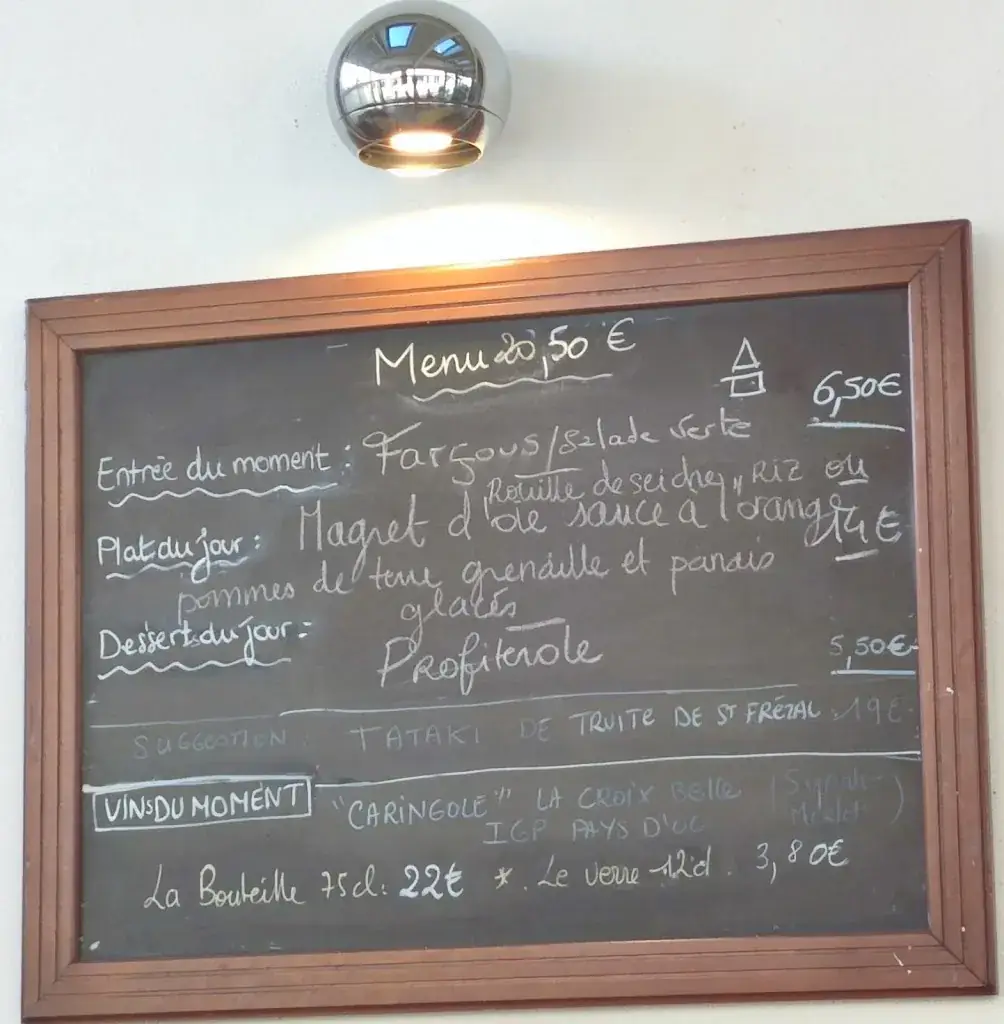 Menu 20,50 €
6,50€
Entrée du moment : Farçous/Salade verte
Rouille de seiche, Riz ou
Plat du jour : Magret d'oie sauce à l'orange 14€
pommes de terre grenaille et panais
glacés
Dessert du jour :
Profiterole 5,50€
SUGGESTION : TATAKI DE TRUITE DE ST FRÉZAL 19€
VINS DU MOMENT "CARINGOLE" LA CROIX BELLE (Syrah-
IGP PAYS D'OC Merlot)
La Bouteille 75cl: 22€ * Le verre 12cl. 3,80€